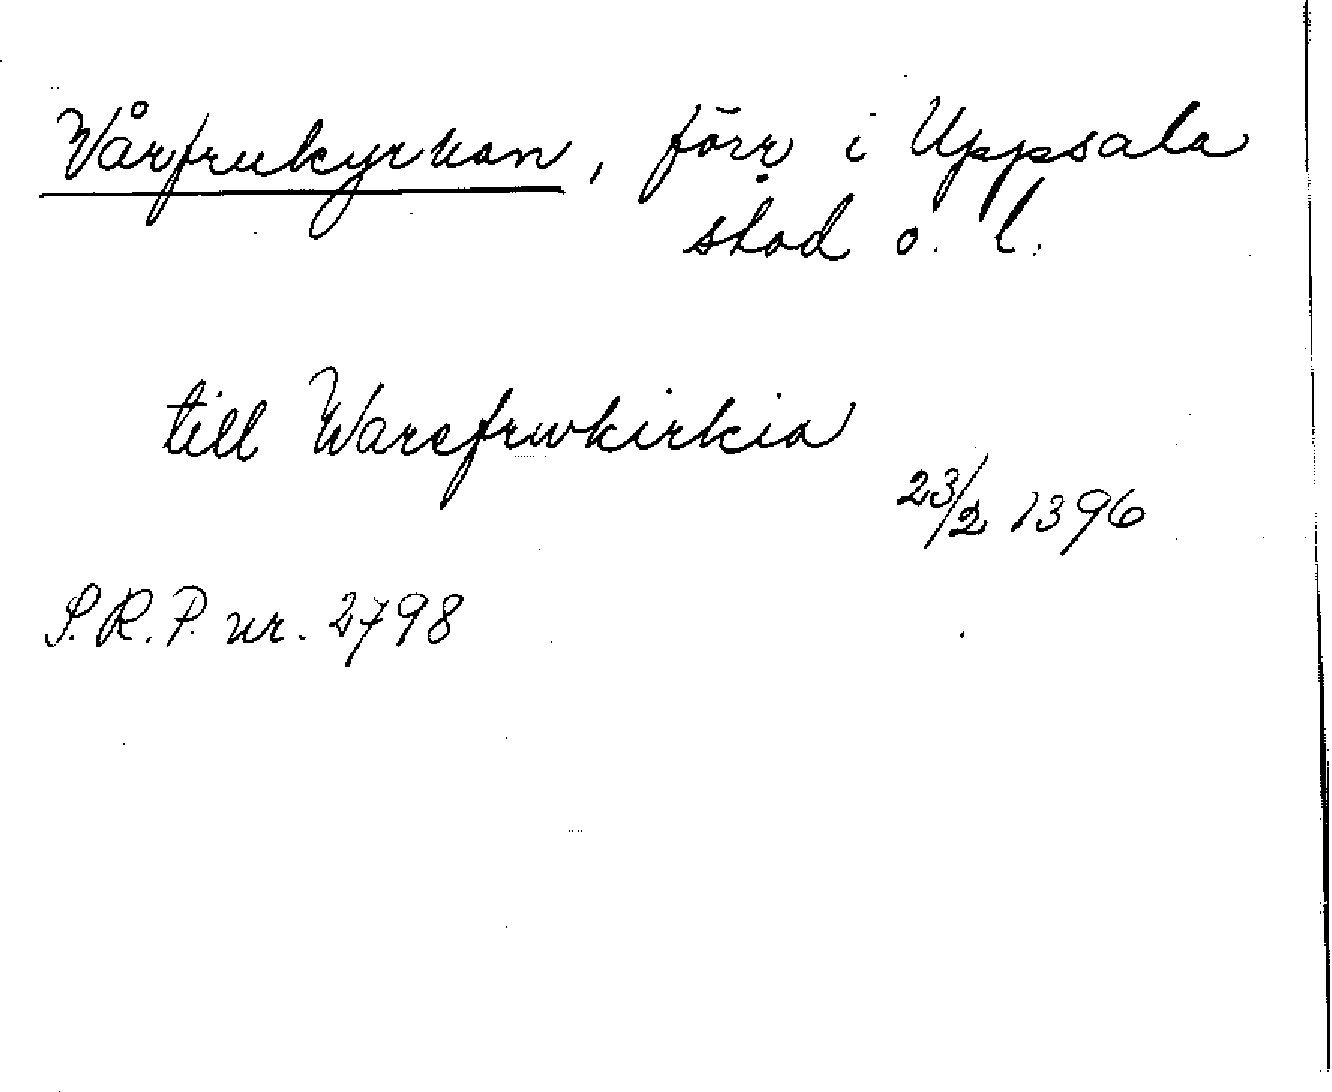 Vårfrukyrkan, förr i Uppsala
stad o. l.
till Warefrwkirkia
23/2 1396
S.R.P. nr. 2798